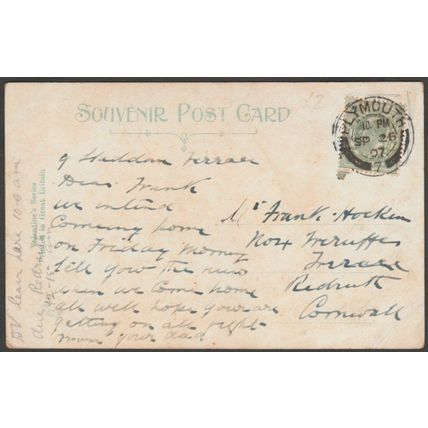 SOUVENIR POST CARD
PLYMOUTH
10. PM
SP 26
07
7
9 Haddon Terrace
Dear Frank
We intend
Comeing home
on Friday
tell you the news
when we Come home
all well hope you are
getting on all right
from your dad
Mr Frank Hocken
Terrace
Redruth
Cornwall
Valentine's Series
Printed in Great Britain
leave here 10-0 am
due Redruth
12-15